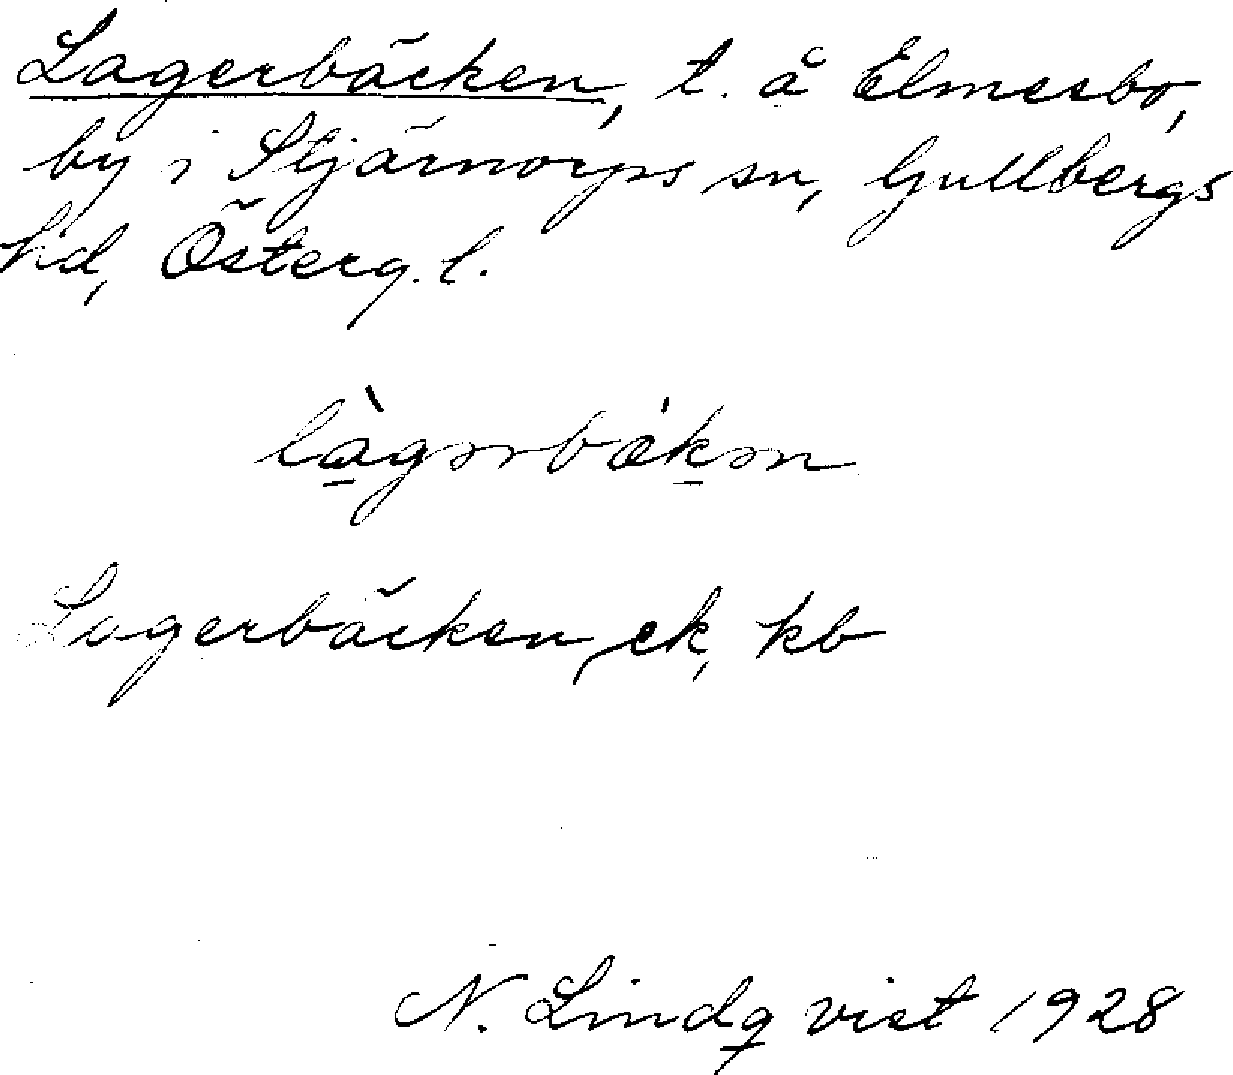 Lagerbäcken, t. å Elmesbo,
by i Stjärnorps sn, Gullbergs
hd, Österg. l.
làgərbäkən
Lagerbäcken, ek, kb
N. Lindqvist 1928